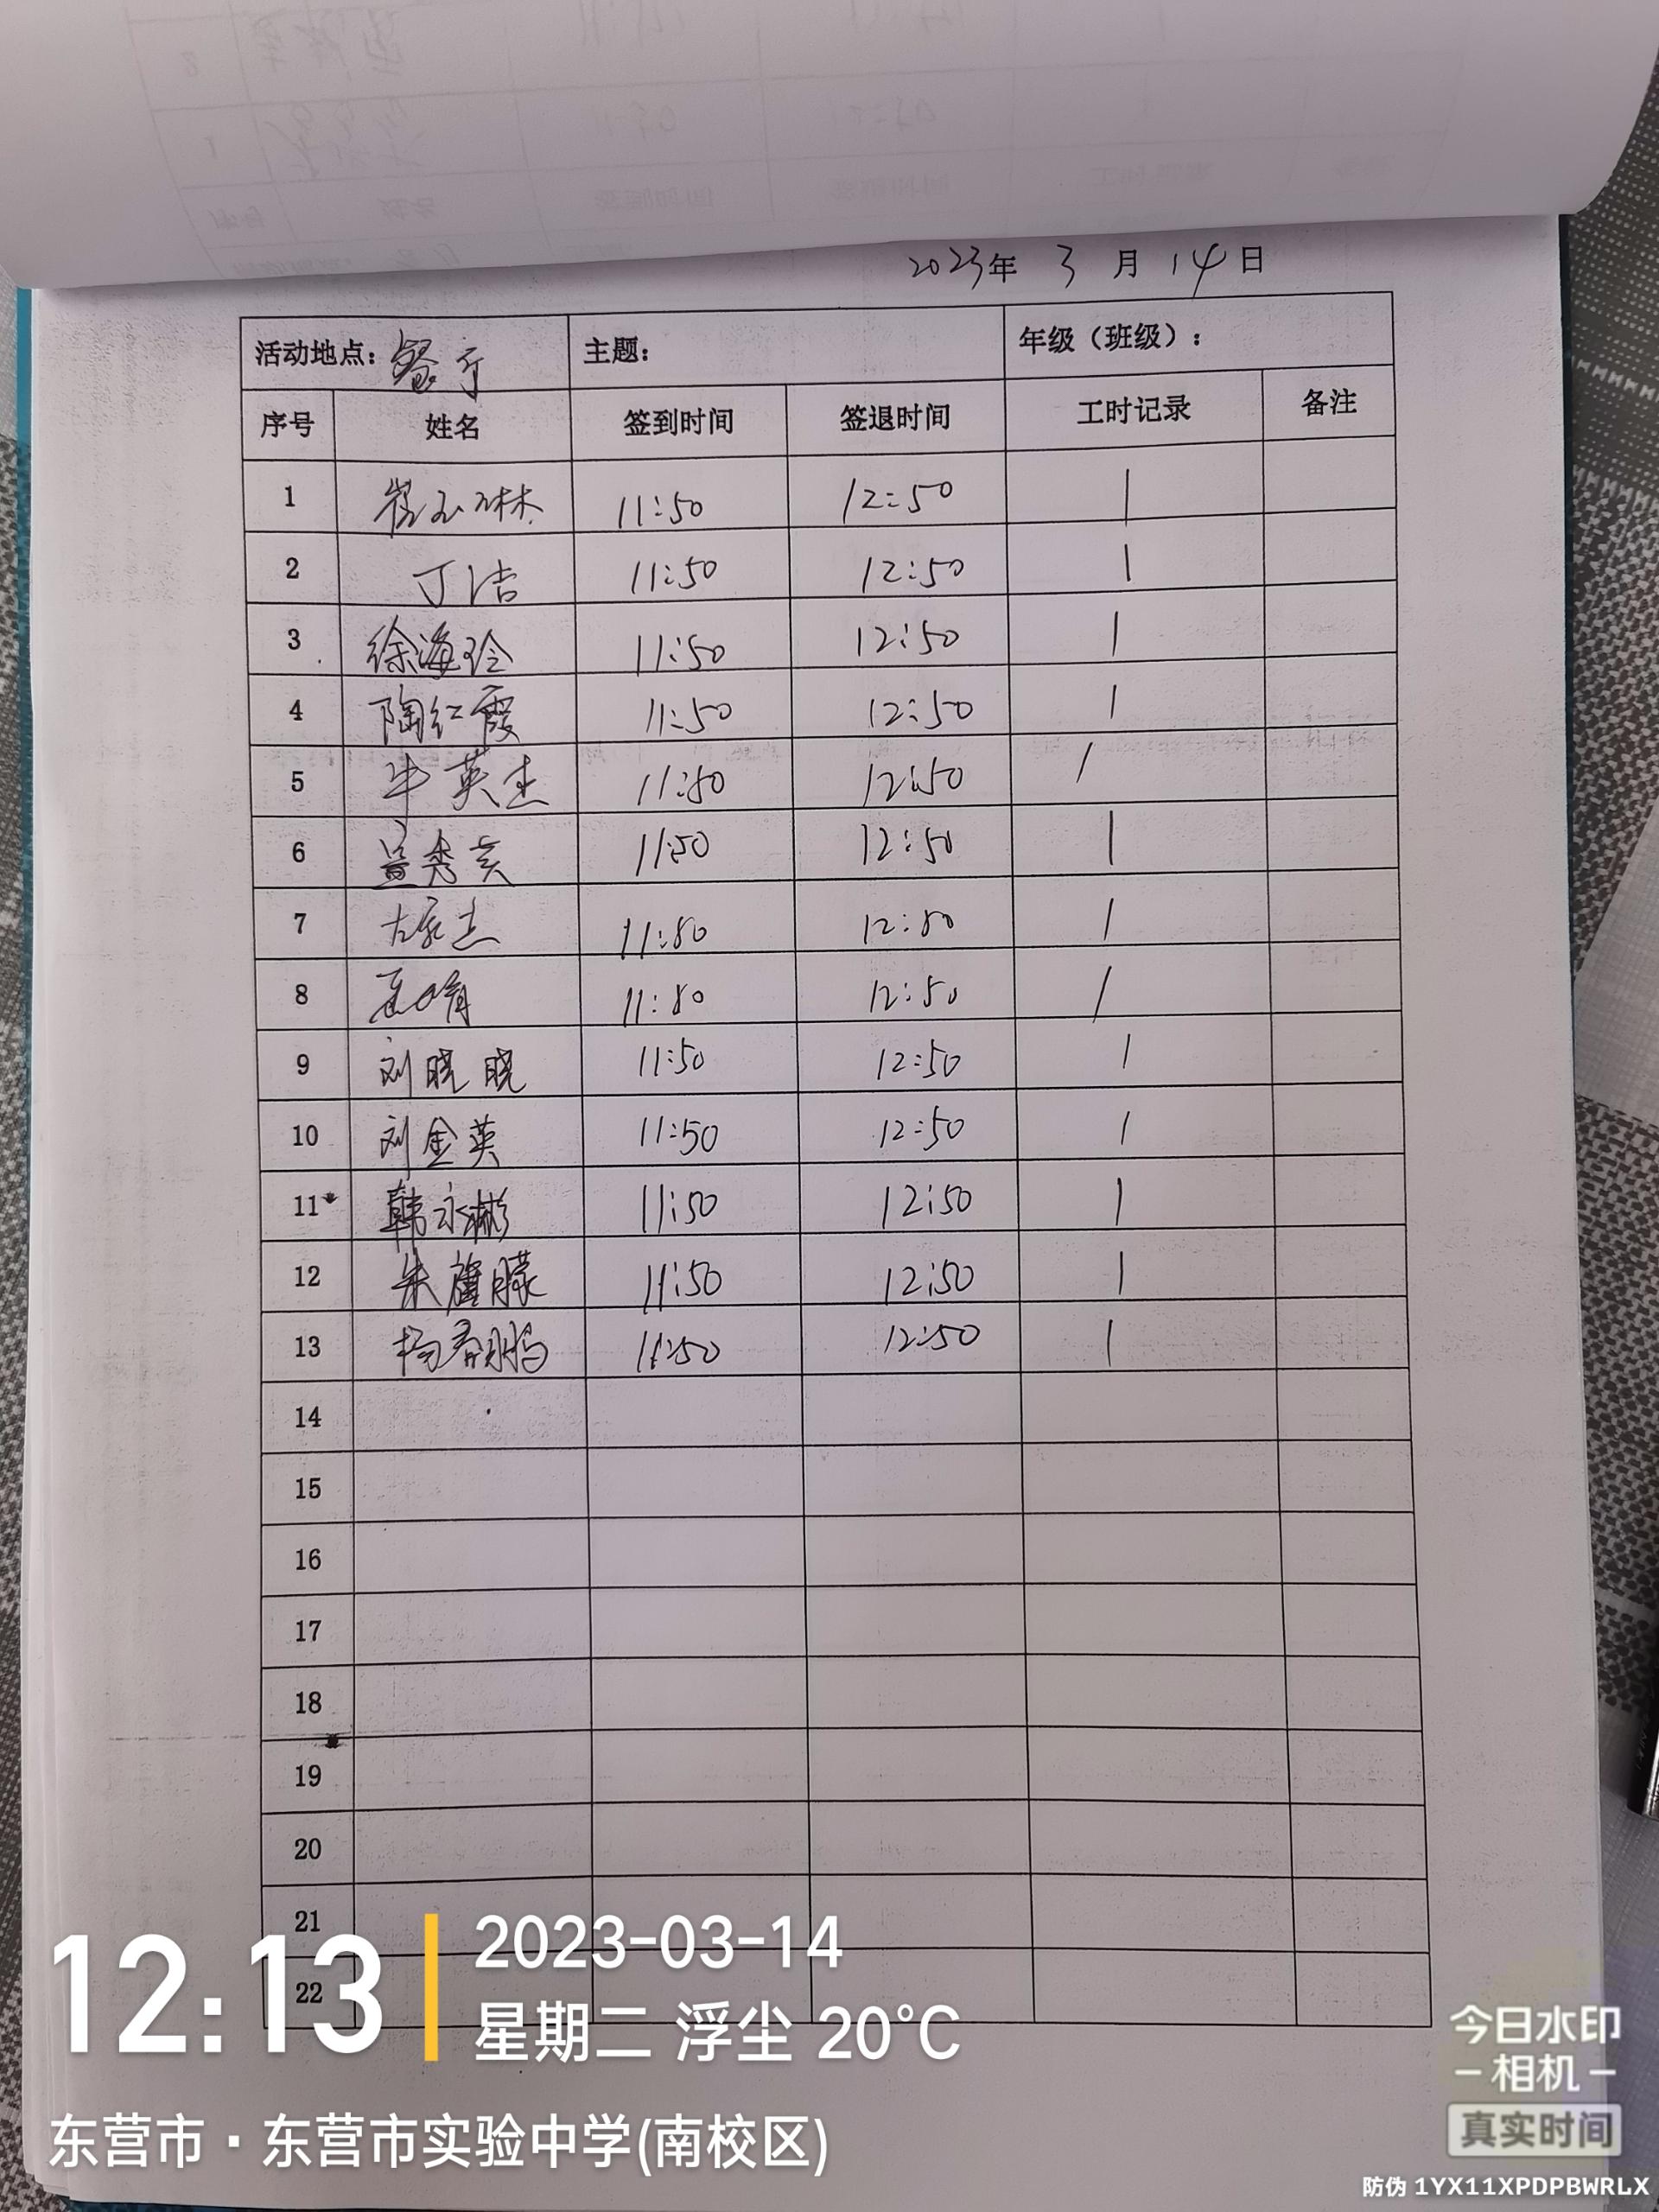 2023年 3 月 14 日
活动地点：餐厅 主题： 年级（班级）：
序号 姓名 签到时间 签退时间 工时记录 备注
1 崔玉琳 11:50 12:50 1
2 丁洁 11:50 12:50 1
3 徐海玲 11:50 12:50 1
4 陶红霞 11:50 12:50 1
5 牛英杰 11:50 12:50 1
6 11:50 12:50 1
7 11:50 12:50 1
8 11:50 12:50 1
9 刘晓晓 11:50 12:50 1
10 刘金英 11:50 12:50 1
11 韩永彬 11:50 12:50 1
12 11:50 12:50 1
13 杨春鹏 11:50 12:50 1
14
15
16
17
18
19
20
21
22
12:13
2023-03-14
星期二 浮尘 20°C
东营市·东营市实验中学(南校区)
今日水印
相机
真实时间
防伪 1YX11XPDPBWRLX